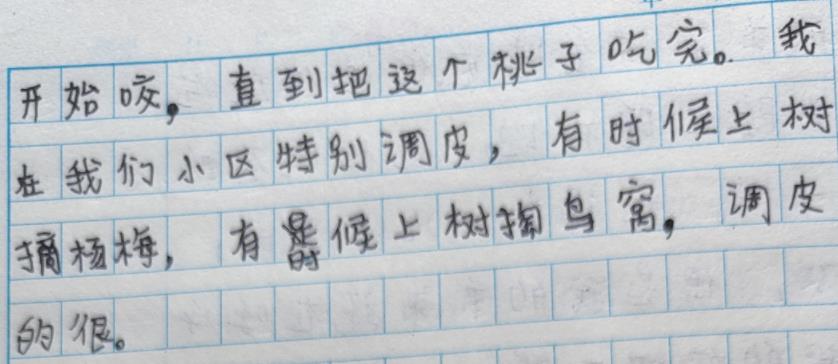 开始咬，直到把这个桃子吃完。我
在我们小区特别调皮，有时候上树
摘杨梅，有时候上树掏鸟窝，调皮
的很。